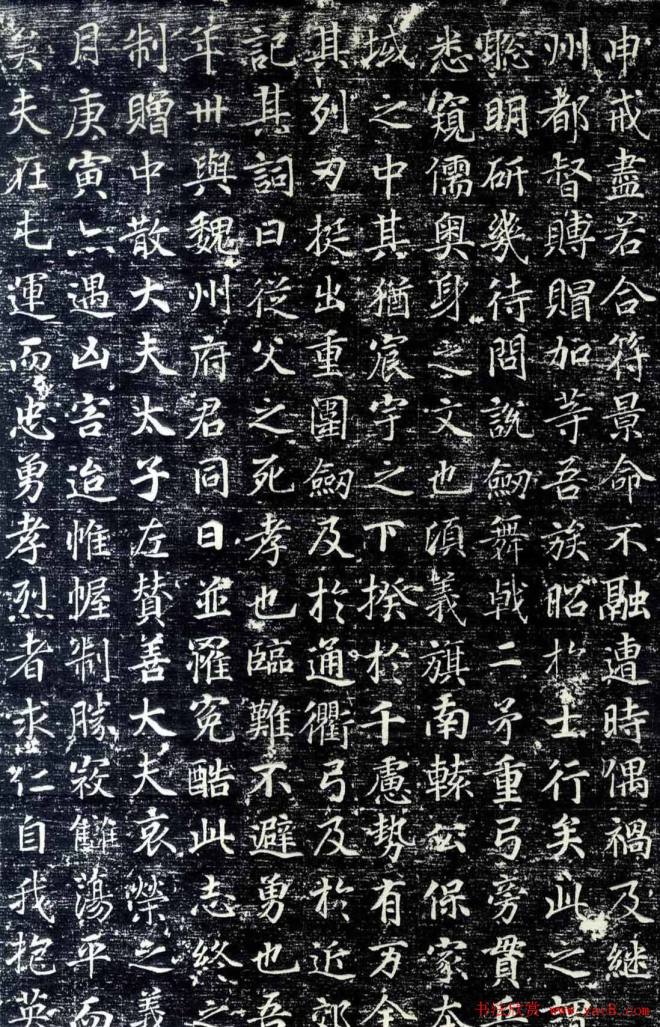 申戒盡若合符景命不融遭時偶禍及継
州都督賻賵加等吾族昭於士行矣此之
聡明研幾待問說劒舞戟二矛重弓旁貫
悉窺儒奥身之文也頃義旗南轅公保家
域之中其猶宸宇之下揆於千慮勢有万全
其列刃挺出重圍劒及於通衢弓及於近郊
記其詞曰從父之死孝也臨難不避勇也吾
年卅與魏州府君同日並罹冤酷此志終之
制贈中散大夫太子左賛善大夫哀榮之義
月庚寅亦遇凶害迨帷幄制勝寇讎蕩平而
矣夫在屯運而忠勇孝烈者求仁自我抱英
书法欣赏 www.yac8.com